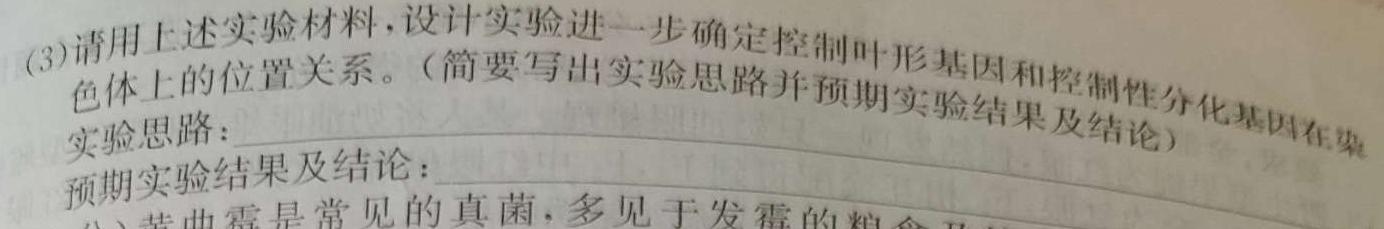 (3)请用上述实验材料,设计实验进一步确定控制叶形基因和控制性分化基因在染
色体上的位置关系。(简要写出实验思路并预期实验结果及结论)
实验思路:
预期实验结果及结论:
黄曲霉是常见的真菌,多见于发霉的粮食及